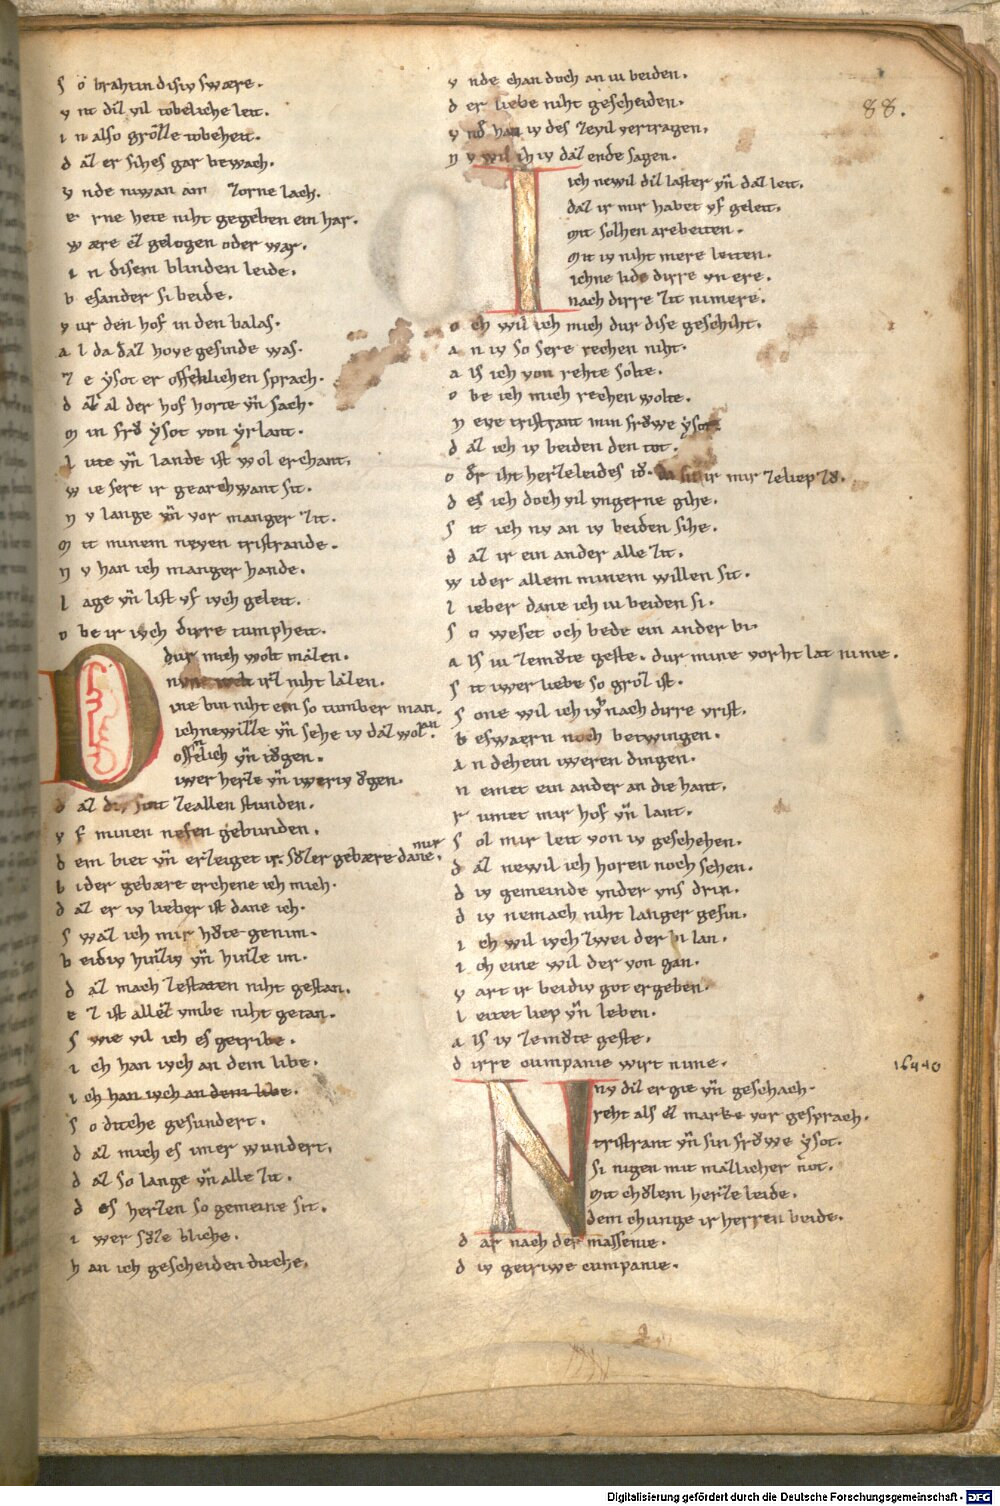 88.
S o brahtin disiv swære.
v nt diz vil tobeliche leit.
i n also grozze tobeheit.
d az er siches gar bewach.
v nde niwan ain zorne lach.
e rne hete niht gegeben ein har.
w ære ez gelogen oder war.
i n disem blinden leide.
b esander si beide.
v ur den hof in den balas.
a l da daz hove gesinde was.
z e ẏsot er offenlichen sprach.
d az al der hof horte vn̄ sach.
m in frŏ ẏsot von ẏrlant.
l ute vn̄ lande ist wol erchant.
w ie sere ir gearchwant sit.
n v lange vn̄ vor manger zit.
m it minem neven tristrande.
n v han ich manger hande.
l age vn̄ list vf iuch geleit.
o be ir iuch dirre tumpheit.
D dur mich wolt mazen.
nv irz niht lazen.
ine bin niht ein so tumber man.
ichne wizze vn̄ sehe iv daz wol an
offēlich vn̄ tŏgen.
iwer herze vn̄ iweriv ŏgen.
d az div sint zeallen stunden.
v f minen nefen gebunden.
d em biet vn̄ erzeiget ir. sŏzer gebære danne mir.
b i der gebære erchene ich mich.
d az er iv lieber ist dane ich.
S waz ich mir hŏte genim.
b eidiv hinziv vn̄ hinze im.
d az mach zestaten niht gestan.
e z ist allez vmbe niht getan.
S wie vil ich es getribe.
i ch han iuch an dem libe.
i ch han iuch an dem libe.
S o diche gesundert.
d az mich es imer wundert.
d az so lange vn̄ alle zit.
d es herzen so gemeine sit.
i wer sŏze bliche.
h an ich gescheiden diche.
v nde chan doch an iu beiden.
d er liebe niht gescheiden.
v nd han iv des zevil vertragen.
n v wil ih iv daz ende sagen.
I ich newil diz laster vn̄ daz leit.
daz ir mir habet vf geleit.
mit solhen arebeiten.
mit iv niht mere leiten.
ichne lide dirre vnere.
nach dirre zit nimere.
o ch wil ich mich dur dise geschiht.
a n iv so sere rechen niht.
a ls ich von rehte solte.
o be ich mich rechen wolte.
n eve tristrant min frŏwe ẏsot.
d az ich iv beiden den tot.
o dr iht herzeleides tŏ. da sit ir mir zeliep zŏ.
d es ich doch vil vngerne gihe.
S it ich nv an iv beiden sihe.
d az ir ein ander alle zit.
w ider allem minem willen sit.
l ieber dane ich iu beiden si.
S o weset och bede ein ander bi.
a ls iu zemŏte geste. dur mine vorht lat nime.
S it iwer liebe so groz ist.
S one wil ich iv nach dirre vrist.
b eswaern noch betwingen.
a n dehein iweren dingen.
n emet ein ander an die hant.
r umet mir hof vn̄ lant.
S ol mir leit von iv geschehen.
d az newil ich horen noch sehen.
d iv gemeinde vnder vns drin.
d iv nemach niht langer gesin.
i ch wil iuch zwei der bi lan.
i ch eine wil der von gan.
v art ir beidiv got ergeben.
l eitet liep vn̄ leben.
a ls iv zemŏte geste.
d irre cumpanie wirt nime.
16440
N nv diz ergie vn̄ geschach.
reht als ez marke vor gesprach.
tristrant vn̄ sin frŏwe ẏsot.
si nigen mit mazlicher not.
mit chŏlem herze leide.
dem chunige ir herren beide.
d ar nach der massenie.
d iv getriwe cumpanie.
Digitalisierung gefördert durch die Deutsche Forschungsgemeinschaft - DFG